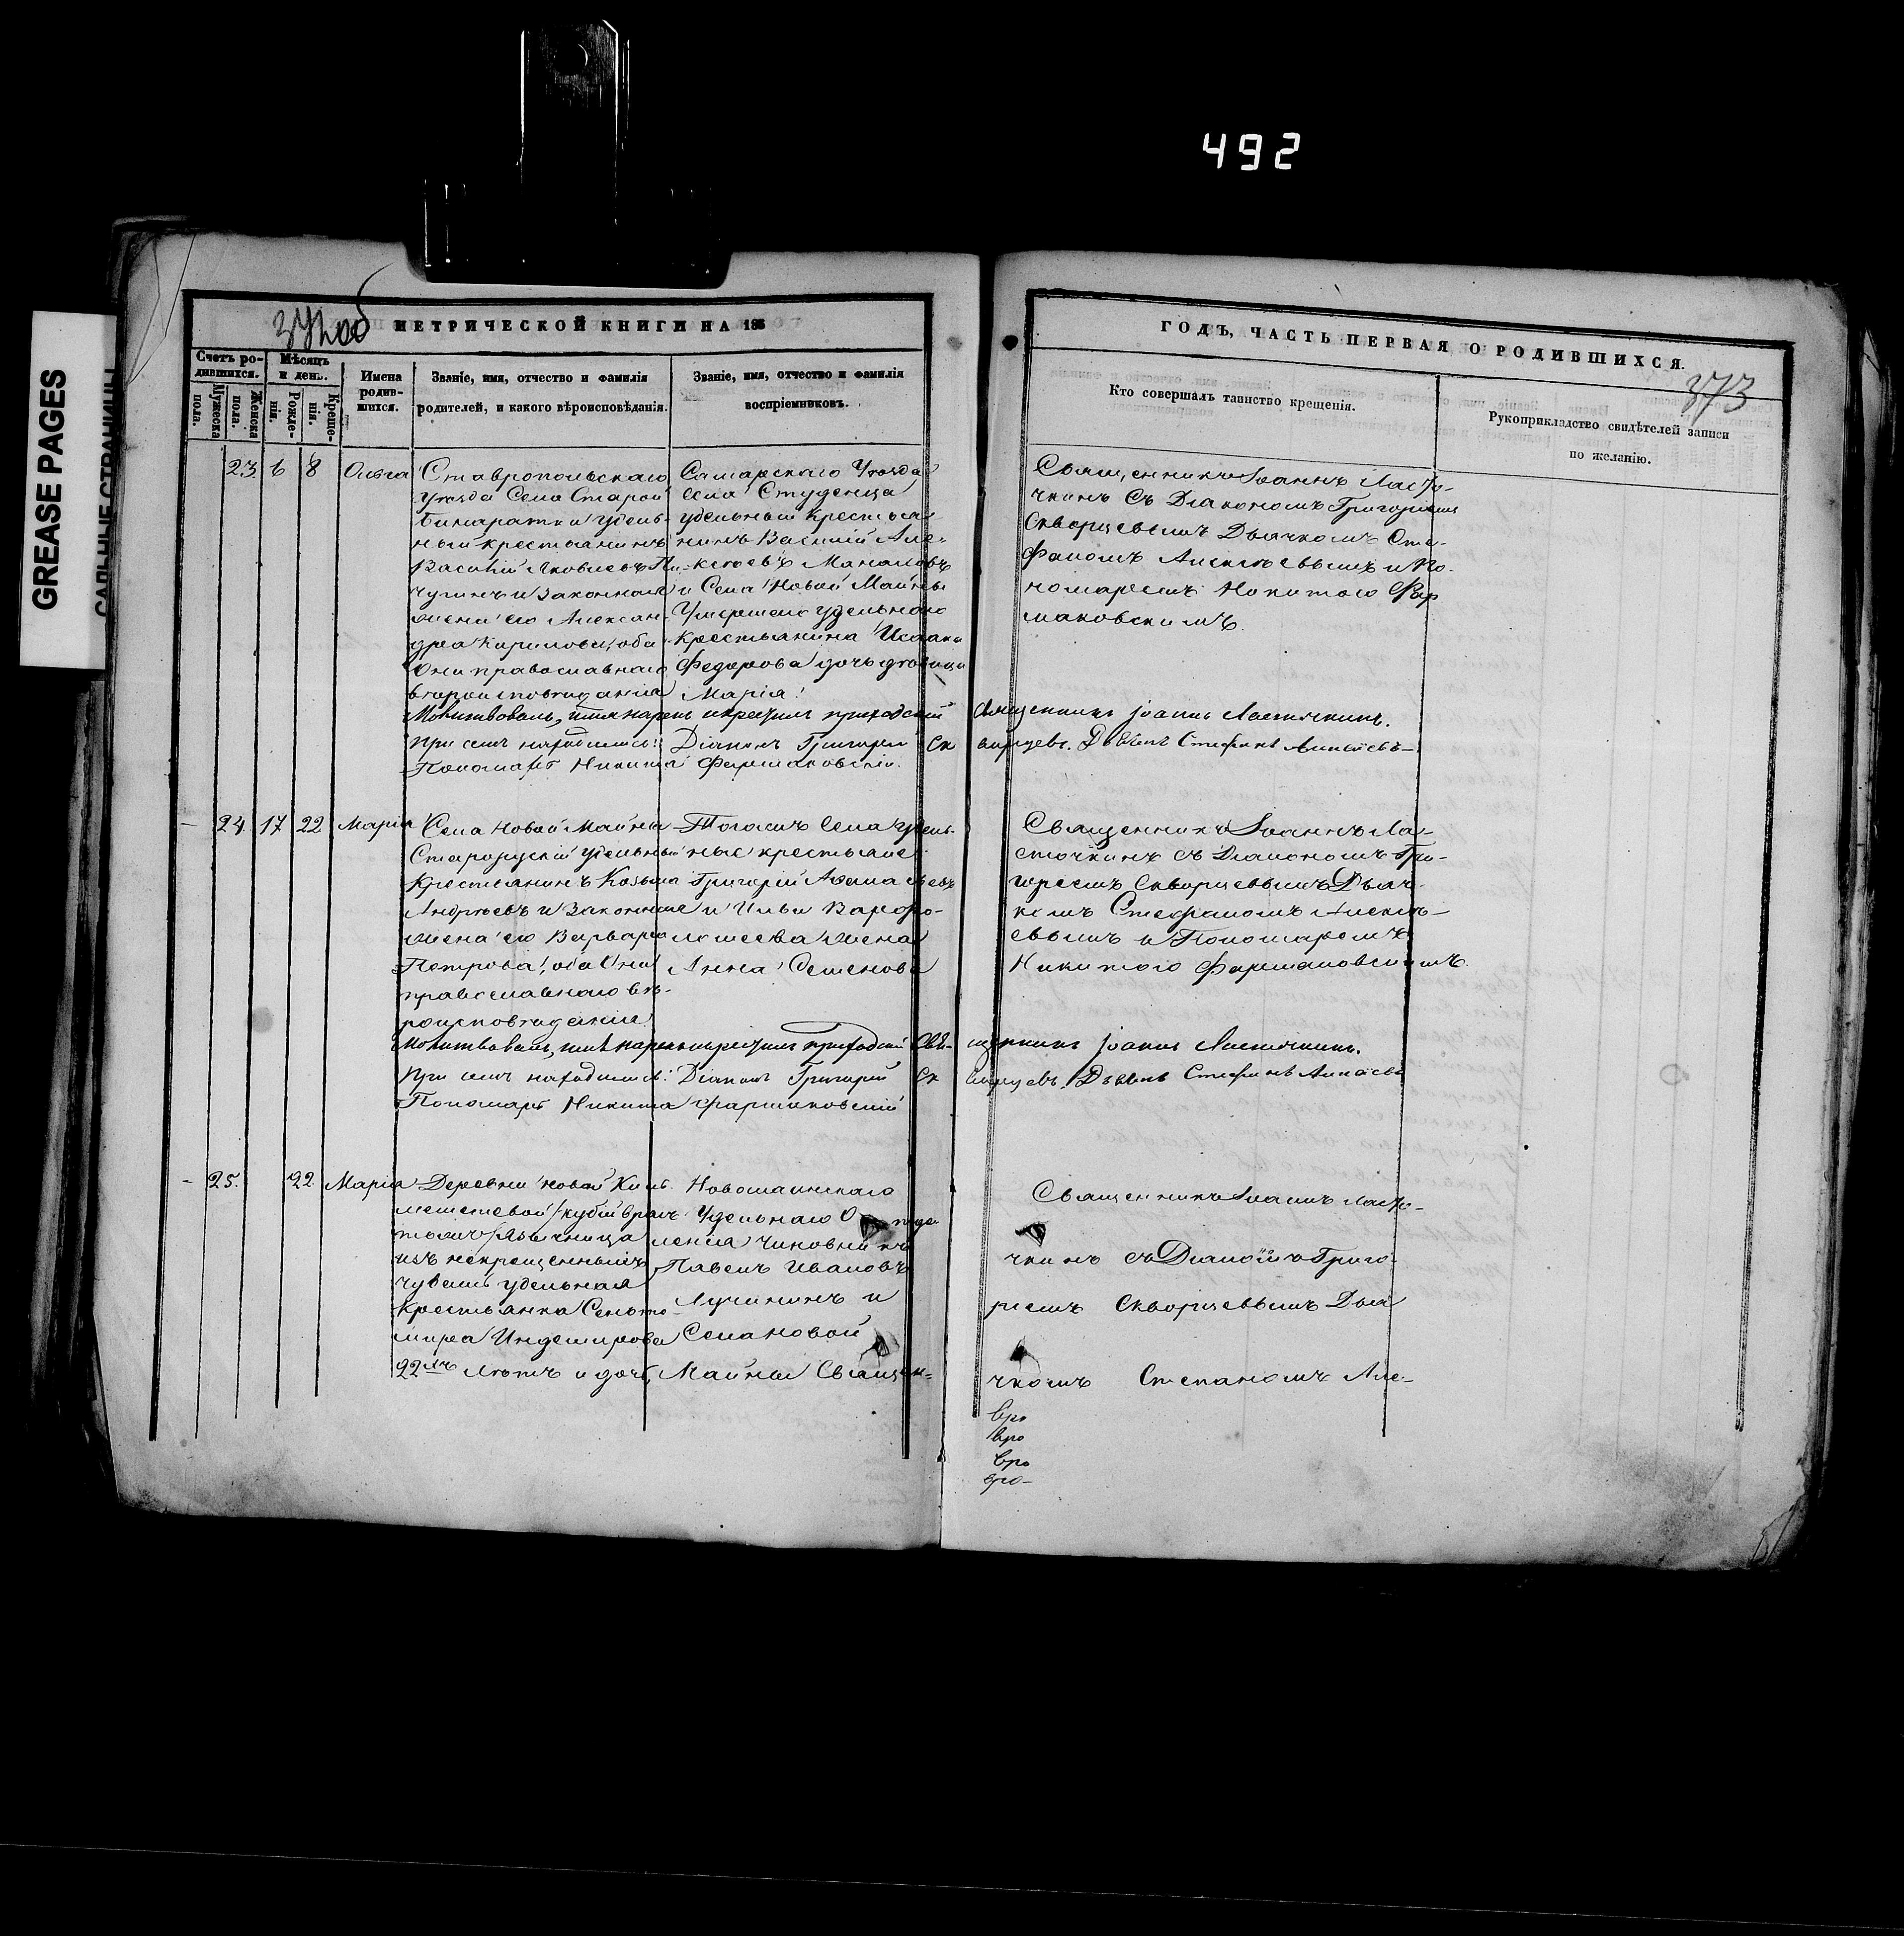 492
GREASE PAGES
САЛЬНЫЕ СТРАНИЦЫ
МЕТРИЧЕСКОЙ КНИГИ НА 186
Счетъ родившихся.
Мѣсяцъ и день.
Имена родившихся.
Званіе, имя, отчество и фамилія родителей, и какого вѣроисповѣданія.
Званіе, имя, отчество и фамилія воспріемниковъ.
Мужеска пола.
Женска пола.
Рожденія.
Крещенія.
ГОДЪ, ЧАСТЬ ПЕРВАЯ О РОДИВШИХСЯ.
373
Кто совершалъ таинство крещенія.
Рукоприкладство свидѣтелей записи по желанію.
23. 6 8 Ольга
Ставропольскаго
Уѣзда Села Старой
Бинарадки удѣль-
ный крестьянинъ
Василій Яковлевъ
чугинъ и законная
жена его Алексан-
дра Кирилова, оба
Они православнаго
вѣроисповѣданія
Самарскаго Уѣзда
села Студенца
удѣльный крестья-
нинъ Василій Але-
ксѣевъ
и Села Новой Майны
Умершаго удѣльнаго
крестьянина Исаака
Федорова дочь дѣвица
Марія
Священникъ Іоаннъ Ласто-
чкинъ съ Діакономъ Григоріемъ
Скворцевымъ Дьячкомъ Сте-
фаномъ Алексѣевымъ и По-
номаремъ Никитою Фар
маковскимъ.
Молитвовалъ, имя нарекъ и крестилъ приходскій Священникъ Іоаннъ Ласточкинъ.
При семъ находились: Діаконъ Григорій Скворцевъ. Дьячекъ Стефанъ Алексѣевъ
Пономарь Никита Фармаковскій.
- 24. 17 22 Марія
Села Новой Майны
Старорускій удѣльный
крестьянинъ Козьма
Андреевъ и Законная
жена его Варвара
Петрова, оба Они
православнаго вѣ-
роисповѣданія
Тогожъ Села удѣль-
ные крестьяне
Григорій Афанасьевъ
и Ильи Варфо-
ломеева жена
Анна Семенова
Священникъ Іоаннъ Ла-
сточкинъ съ Діакономъ Гри-
горіемъ Скворцевымъ Дьяч-
комъ Стефаномъ Алексѣ-
евымъ и Пономаремъ
Никитою Фармаковскимъ.
Молитвовалъ, имя нарекъ и крестилъ приходскій Священникъ Іоаннъ Ласточкинъ.
При семъ находились: Діаконъ Григорій Скворцевъ. Дьячекъ Стефанъ Алексѣевъ
Пономарь Никита Фармаковскій
- 25. 22 Марія
Деревни Новой
язычница
изъ некрещенныхъ
чувашъ удѣльная
крестьянка
Индемирова
22 лѣтъ и дочь
Новомаинскаго
Удѣльнаго Отдѣ
ленія Чиновникъ
Павелъ Ивановъ
Лучининъ и
Села Новой
Майны Священ-
Священникъ Іоаннъ Ласто-
чкинъ съ Діакономъ Григо-
ріемъ Скворцевымъ Дья
чкомъ Степаномъ Але-
вро
вро
вро